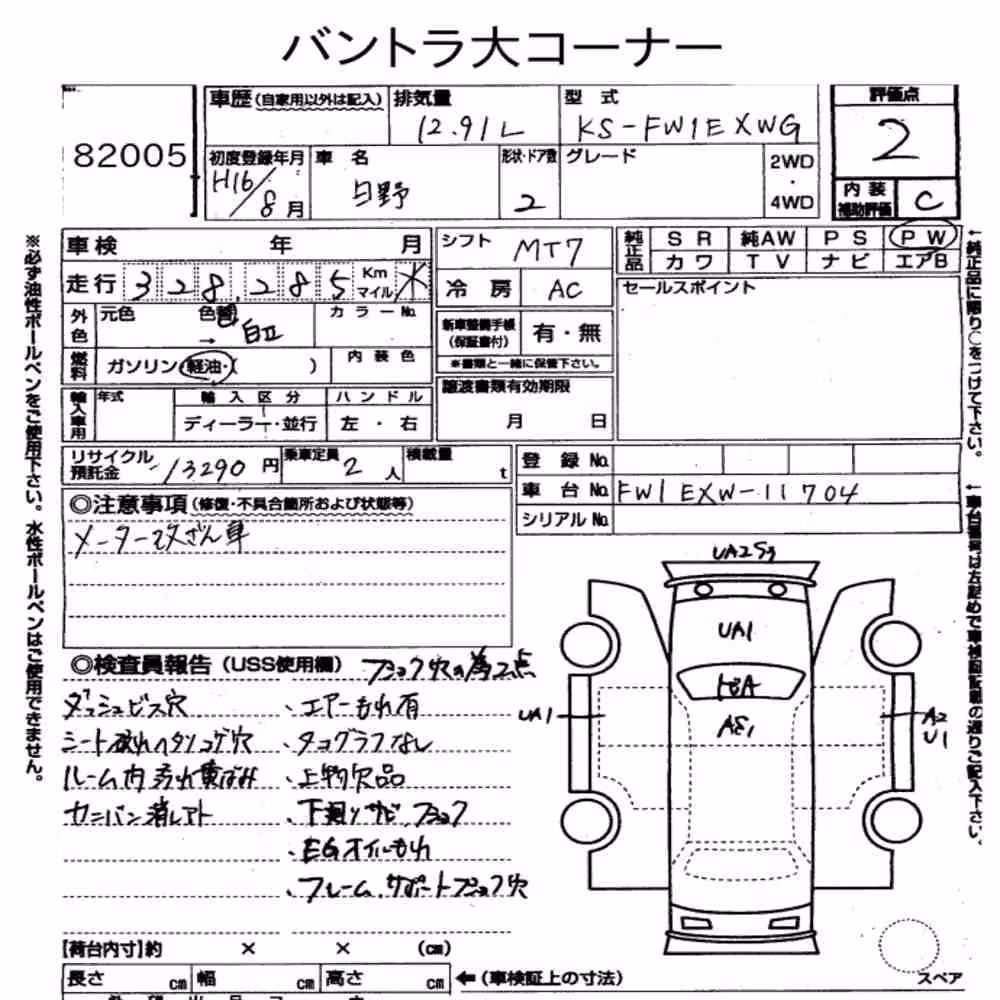 バントラ大コーナー
82005
車歴(自家用以外は記入)
排気量
12.91L
型式
KS-FW1EXWG
評価点
2
初度登録年月
H16/8月
車名
日野
形状・ドア数
2
グレード
2WD
・
4WD
内装
補助評価
C
車検 年 月
シフト
MT7
純正品
SR 純AW PS PW
カワ TV ナビ エアB
走行 328,285 Km マイル ✕
冷房
AC
セールスポイント
外色
元色
色替
→ 白II
カラーNo.
新車整備手帳
(保証書付)
有・無
※書類と一緒に保管下さい。
燃料
ガソリン・軽油・( )
内装色
譲渡書類有効期限
月 日
輸入車用
年式
輸入区分
ハンドル
ディーラー・並行
左・右
リサイクル
預託金
13290円
乗車定員
2人
積載量
t
登録No.
車台No.
FW1EXW-11704
シリアルNo.
◎注意事項(修復・不具合箇所および状態等)
メーター改ざん車
◎検査員報告(USS使用欄)
フラック穴の為2点
ダッシュビス穴
シート破れヘタリコゲ穴
ルーム内汚れ黄ばみ
カンバン消しアト
・エアーもれ有
・タコグラフなし
・上物欠品
・下廻りサビ フラック
・EGオイルもれ
・フレーム、サポートフラック穴
UA2S3
UA1
AE1
UA1
A2
U1
スペア
【荷台内寸】約 × × (cm)
長さ cm 幅 cm 高さ cm
←(車検証上の寸法)
※必ず油性ボールペンをご使用下さい。水性ボールペンはご使用できません。
←純正品に限り○をつけて下さい。
←車台番号は左詰めで車検証記載の通りご記入下さい。